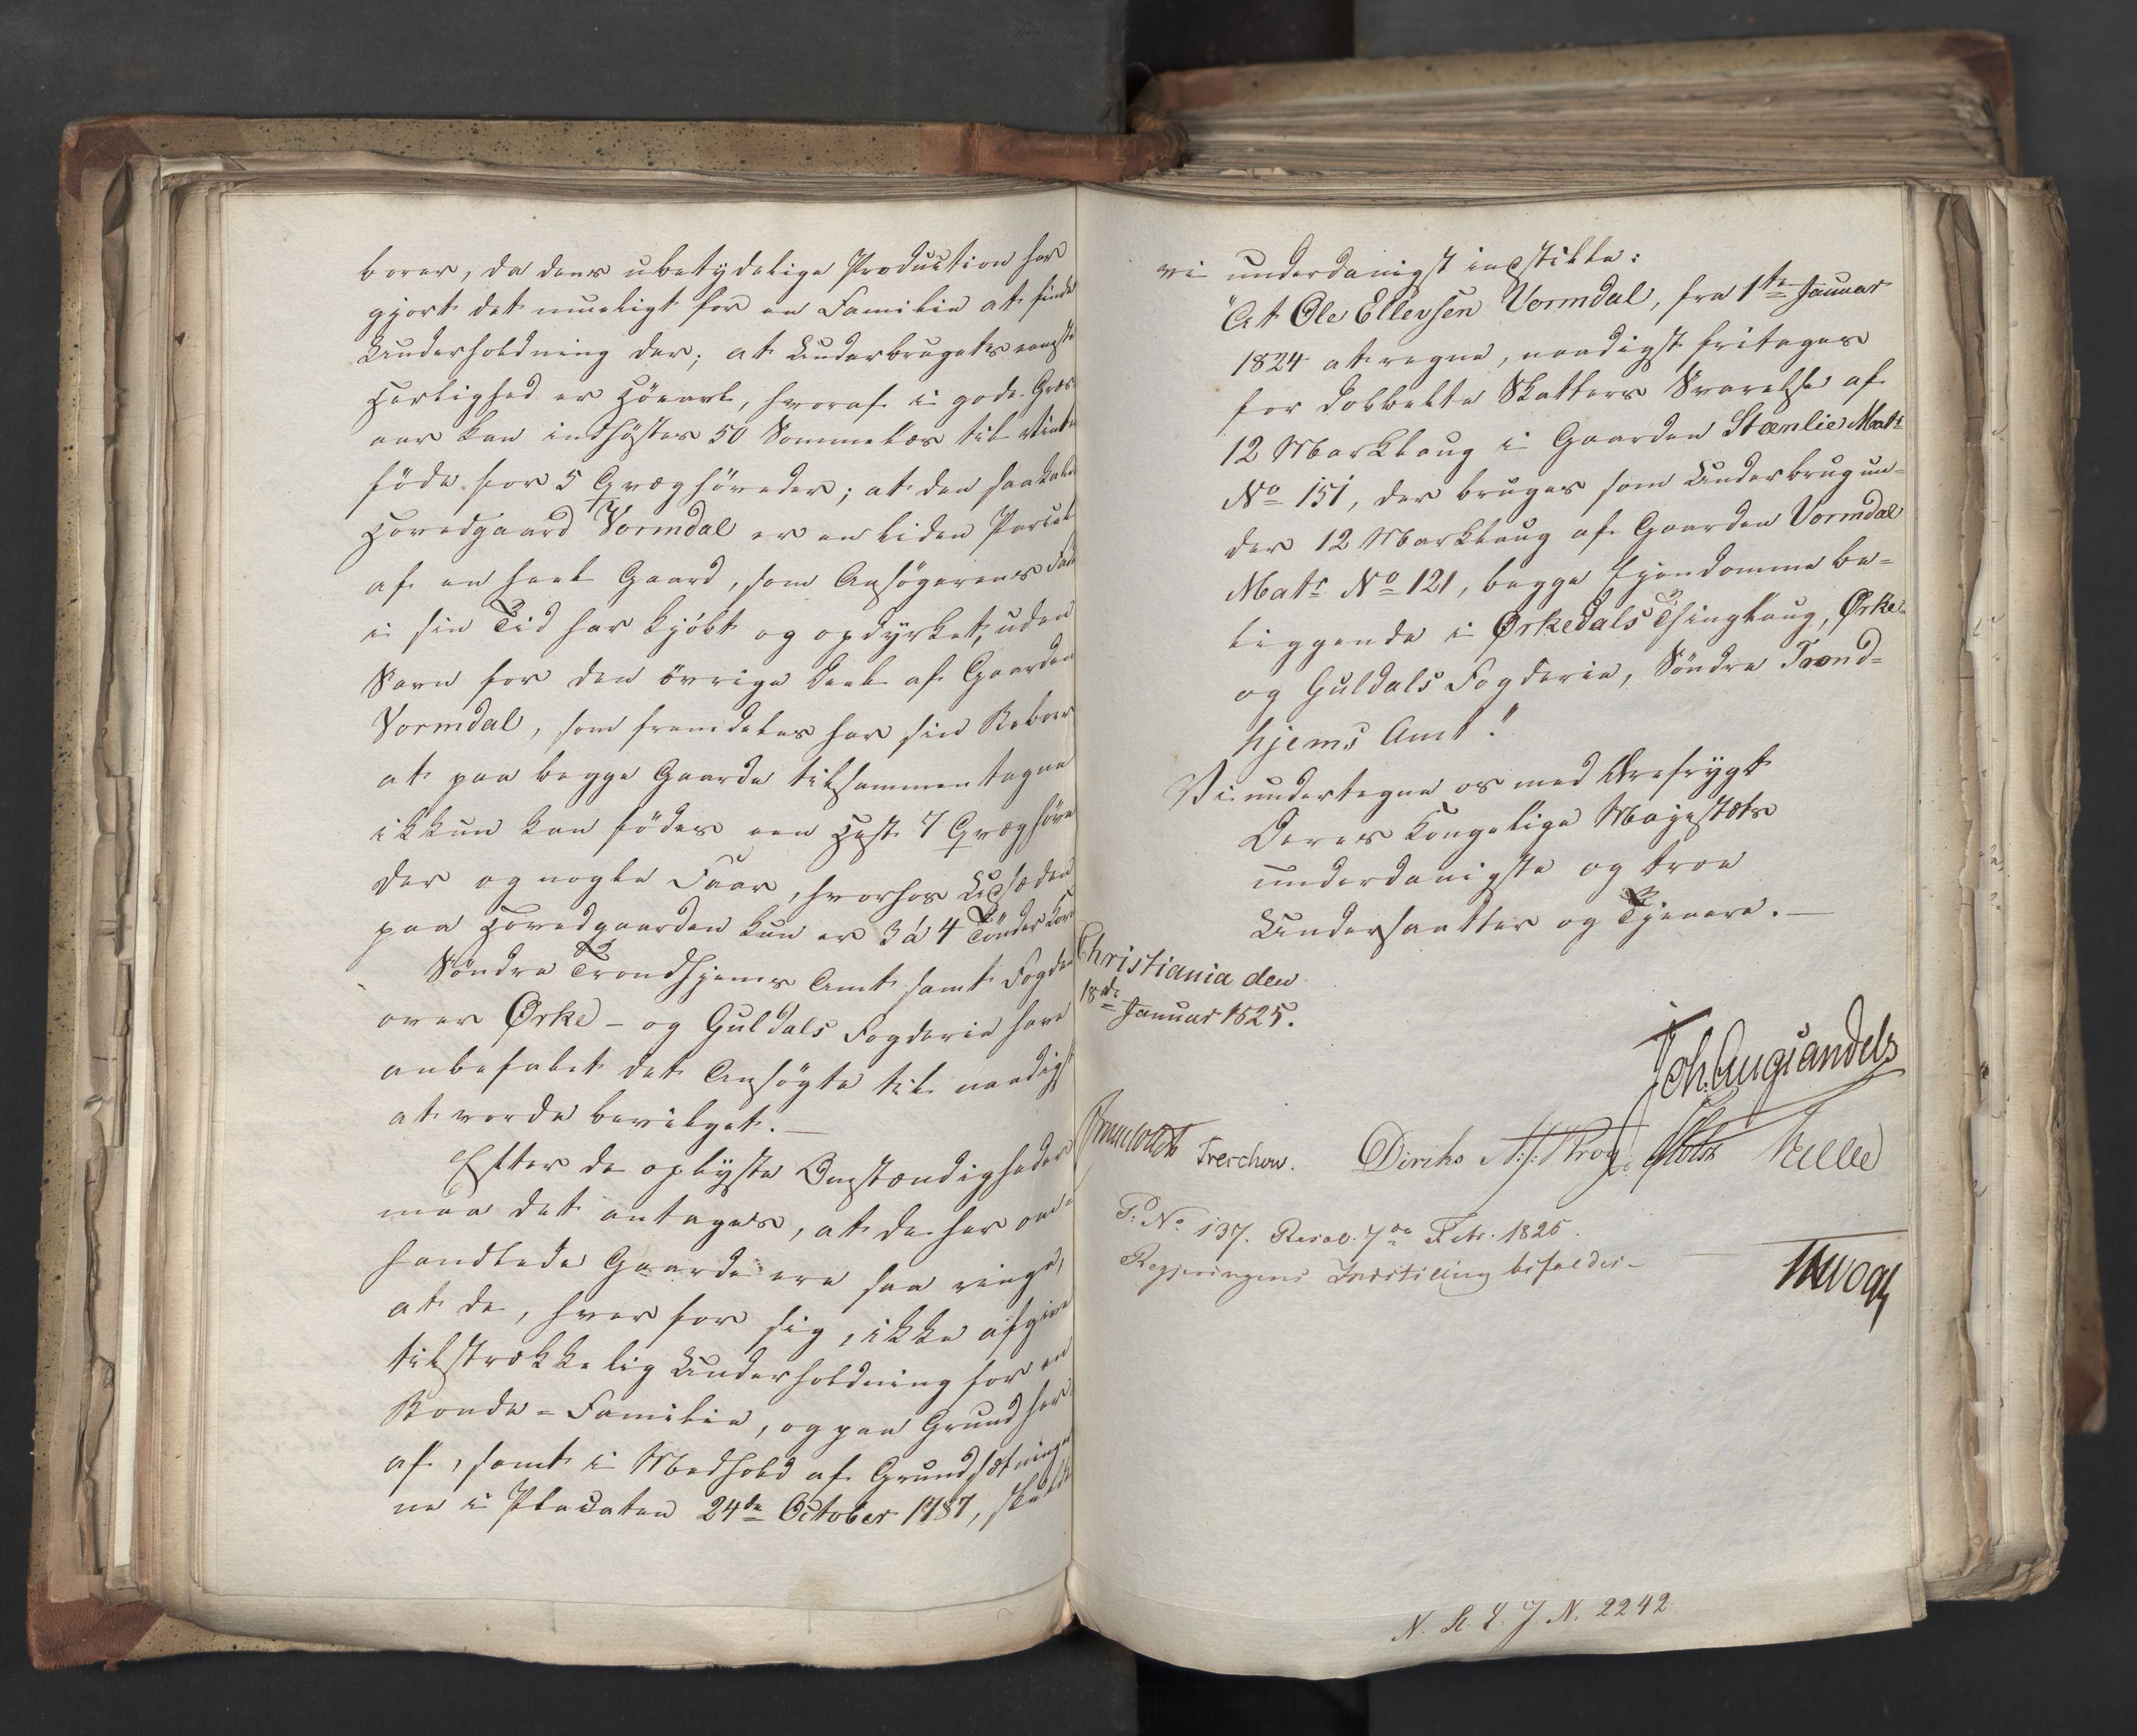 boer, da dens ubetydelige Production har
gjort det mueligt for en Familie at finde
Underholdning der; at Underbrugets eneste
Herlighed er Höeavl, hvoraf i gode Græs-
aar kan indhöstes 50 Sommelæs til Vinter
föde for 5 Qvæghöveder; at den saakaldte
Hovedgaard Vormdal er en liden Parcel
af en heel Gaard, som Ansögerens Fader
i sin Tid har kjöbt og opdyrket, uden
Savn for den övrige Deel af Gaarden
Vormdal, som fremdeles har sin Beboer
at paa begge Gaarde tilsammentagne
ikkun kan födes een Hest 7 Qvæghöve
der og nogle Faar, hvorhos Udsæden
paa Hovedgaarden kun er 3 à 4 Tönder Korn
Söndre Trondhjems Amt samt Fogden
over Ørke- og Guldals Fogderie have
anbefalet det Ansögte til naadigst
at vorde bevilget.—
Efter de oplyste Omstændigheder
maa det antages, at de her om-
handlede Gaarde ere saa ringe,
at de, hver for sig, ikke afgive
tilstrækkelig Underholdning for en
Bonde-Familie, og paa Grund her
af, samt i Medhold af Grundsætninger
ne i Placaten 24de October 1787, skulde
vi underdanigst indstille:
"At Ole Ellevsen Vormdal, fra 1ste Januar
1824 at regne, naadigst fritages
for dobbelte Skatters Svarelse af
12 Marklaug i Gaarden Stænlie Matr
No 151, der bruges som Underbrug un-
der 12 Marklaug af Gaarden Vormdal
Matr No 121, begge Eiendomme be-
liggende i Ørkedals Thinglaug, Ørke-
og Guldals Fogderie, Söndre Trond-
hjems Amt."
Vi undertegne os med Ærefrygt
Deres Kongelige Majestæts
underdanigste og troe
Undersaatter og Tjenere.—
Christiania den
18de Januar 1825.
Joh. Aug. Sandels
Treschow. Diriks
P. No 137. Resol. 7de Febr. 1825.
Regjeringens Indstilling bifaldes—
N. R. L. J. N. 2242